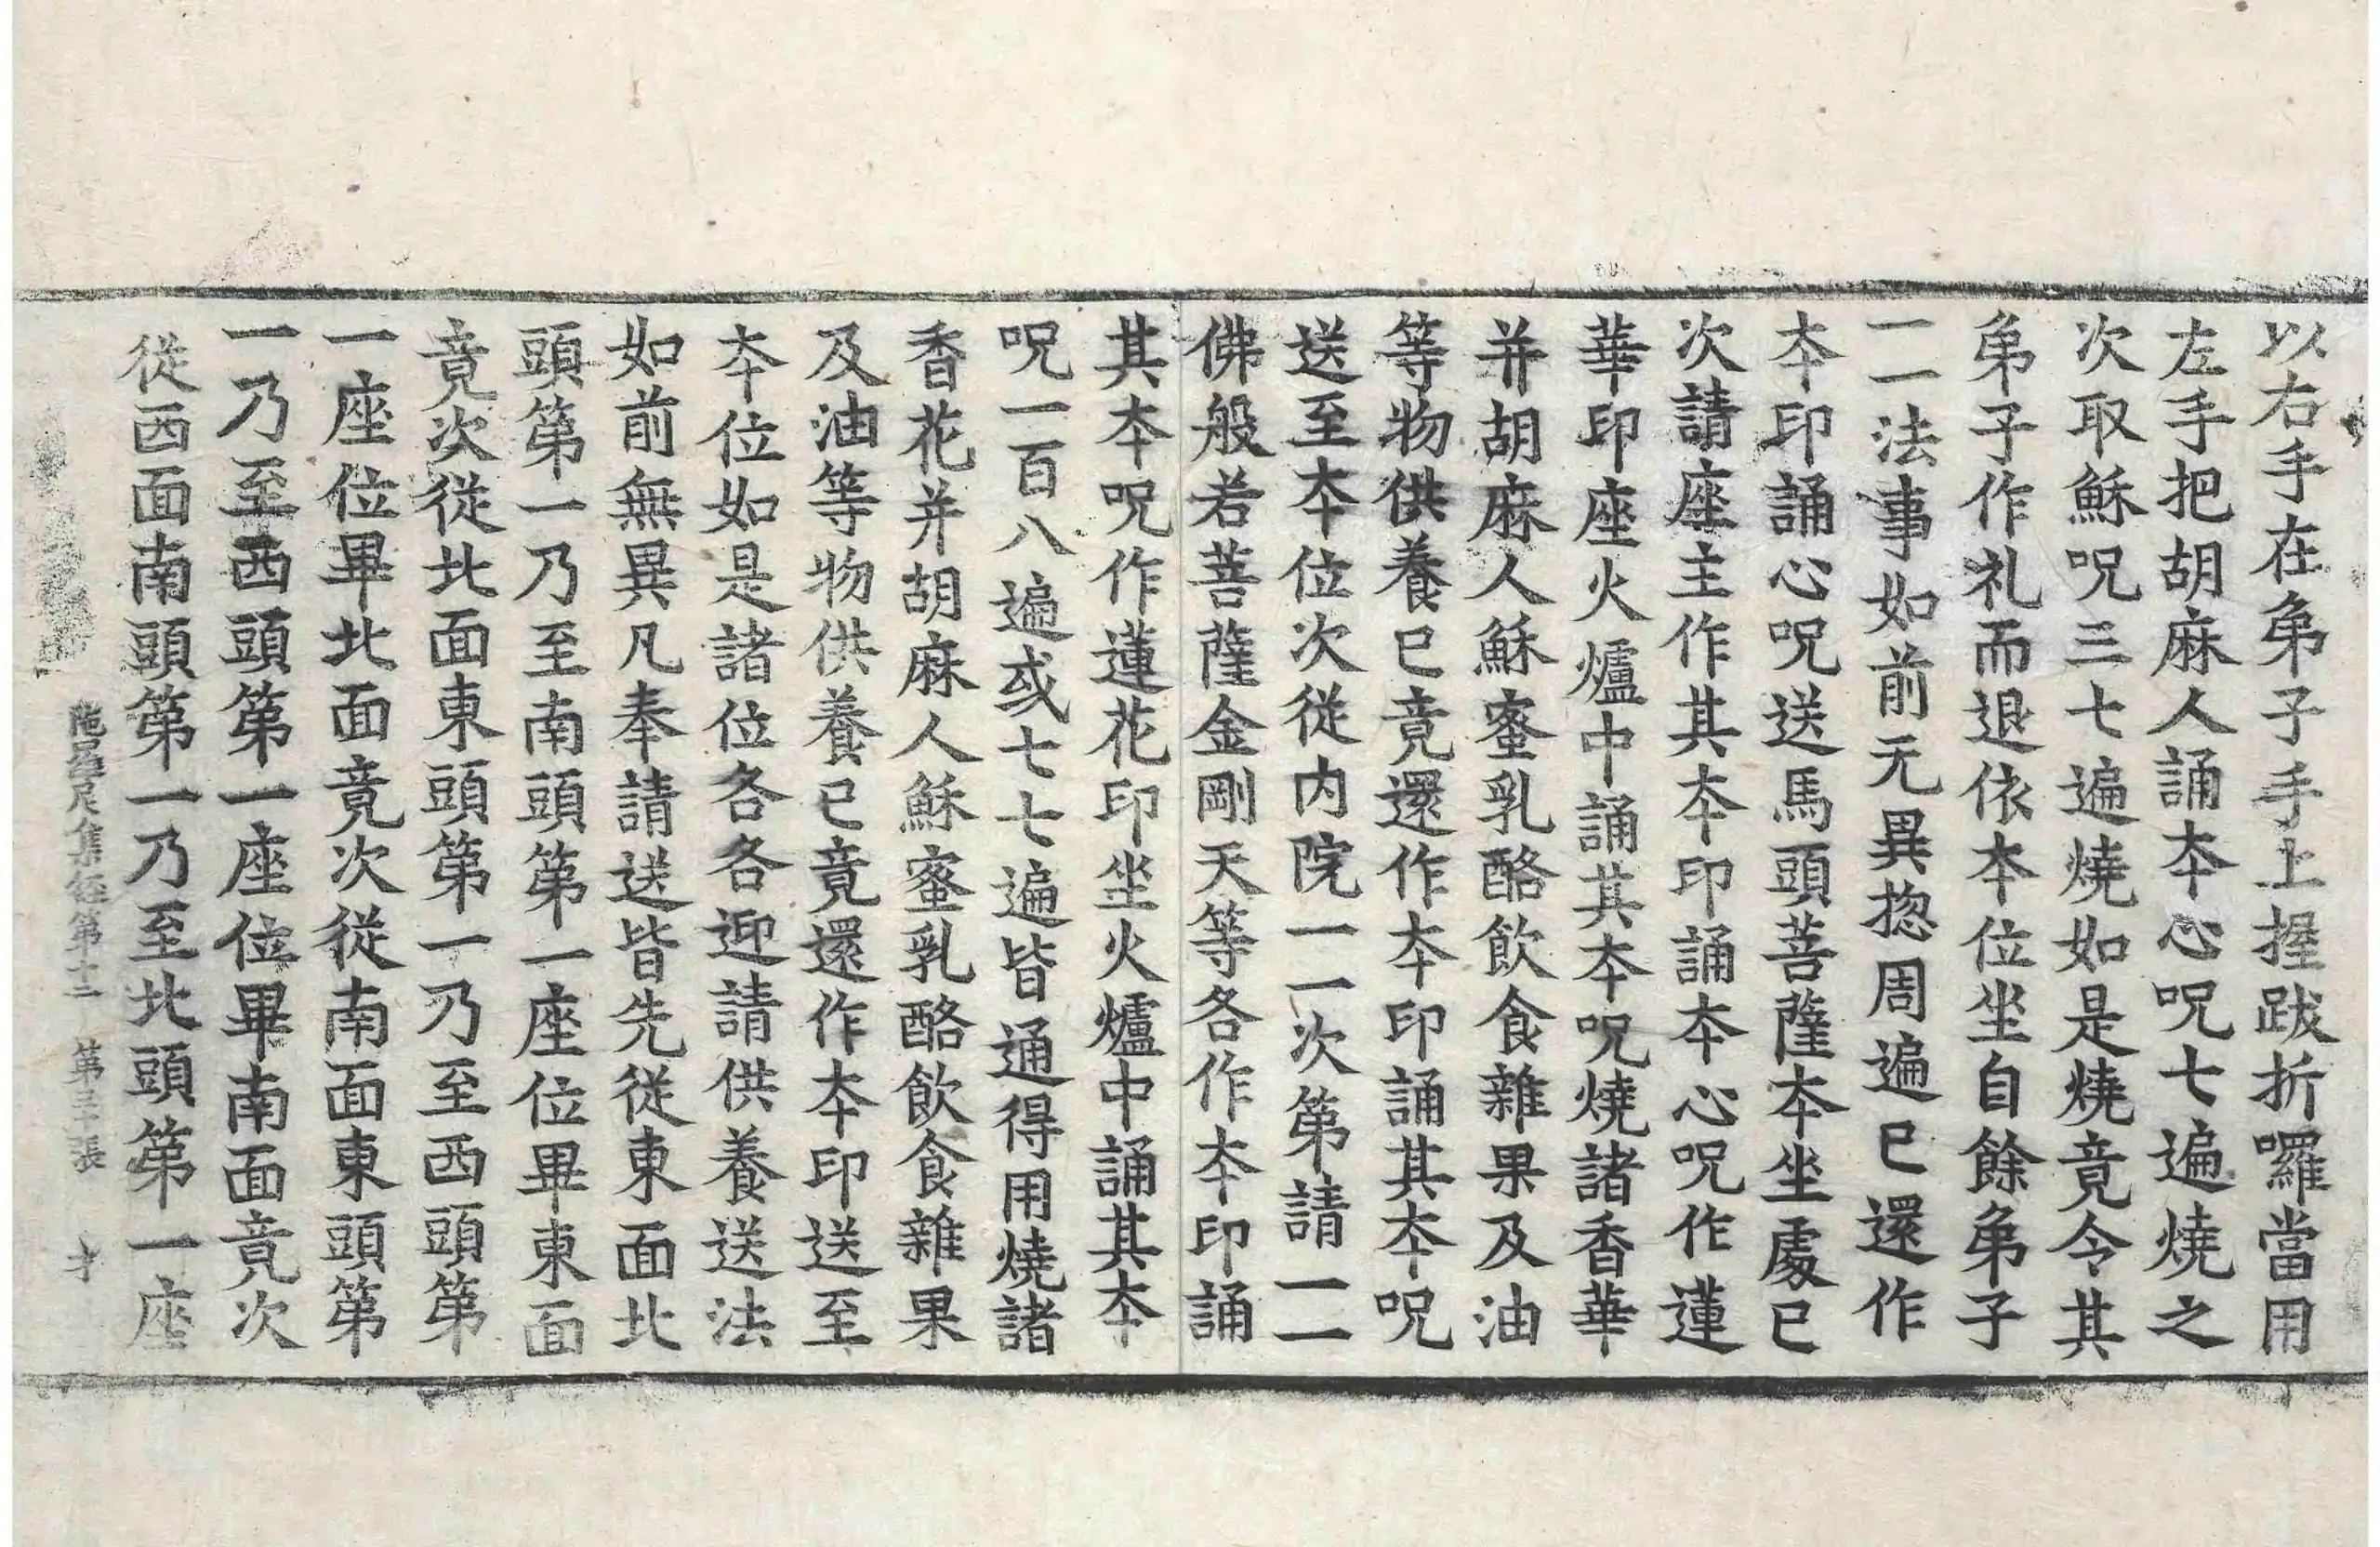 以右手在弟子手上握跋折囉當用
左手把胡麻人誦夲心呪七遍燒之
次取穌呪三七遍燒如是燒竟令其
弟子作礼而退依本位坐自餘弟子
一一法事如前无異揔周遍已還作
夲印誦心呪送馬頭菩薩夲坐處已
次請座主作其夲印誦夲心呪作蓮
華印座火爐中誦其夲呪燒諸香華
并胡麻人穌蜜乳酪飲食雜果及油
等物供養已竟還作夲印誦其夲呪
送至夲位次從内院一一次第請一一
佛般若菩薩金剛天等各作夲印誦
其夲呪作蓮花印坐火爐中誦其夲
呪一百八遍或七七遍皆通得用燒諸
香花并胡麻人穌蜜乳酪飲食雜果
及油等物供養已竟還作夲印送至
夲位如是諸位各各迎請供養送法
如前無異凡奉請送皆先從東面北
頭第一乃至南頭第一座位畢東面
竟次從北面東頭第一乃至西頭第
一座位畢北面竟次從南面東頭第
一乃至西頭第一座位畢南面竟次
從西面南頭第一乃至北頭第一座
陁羅尼集経第十二 第三十張 才